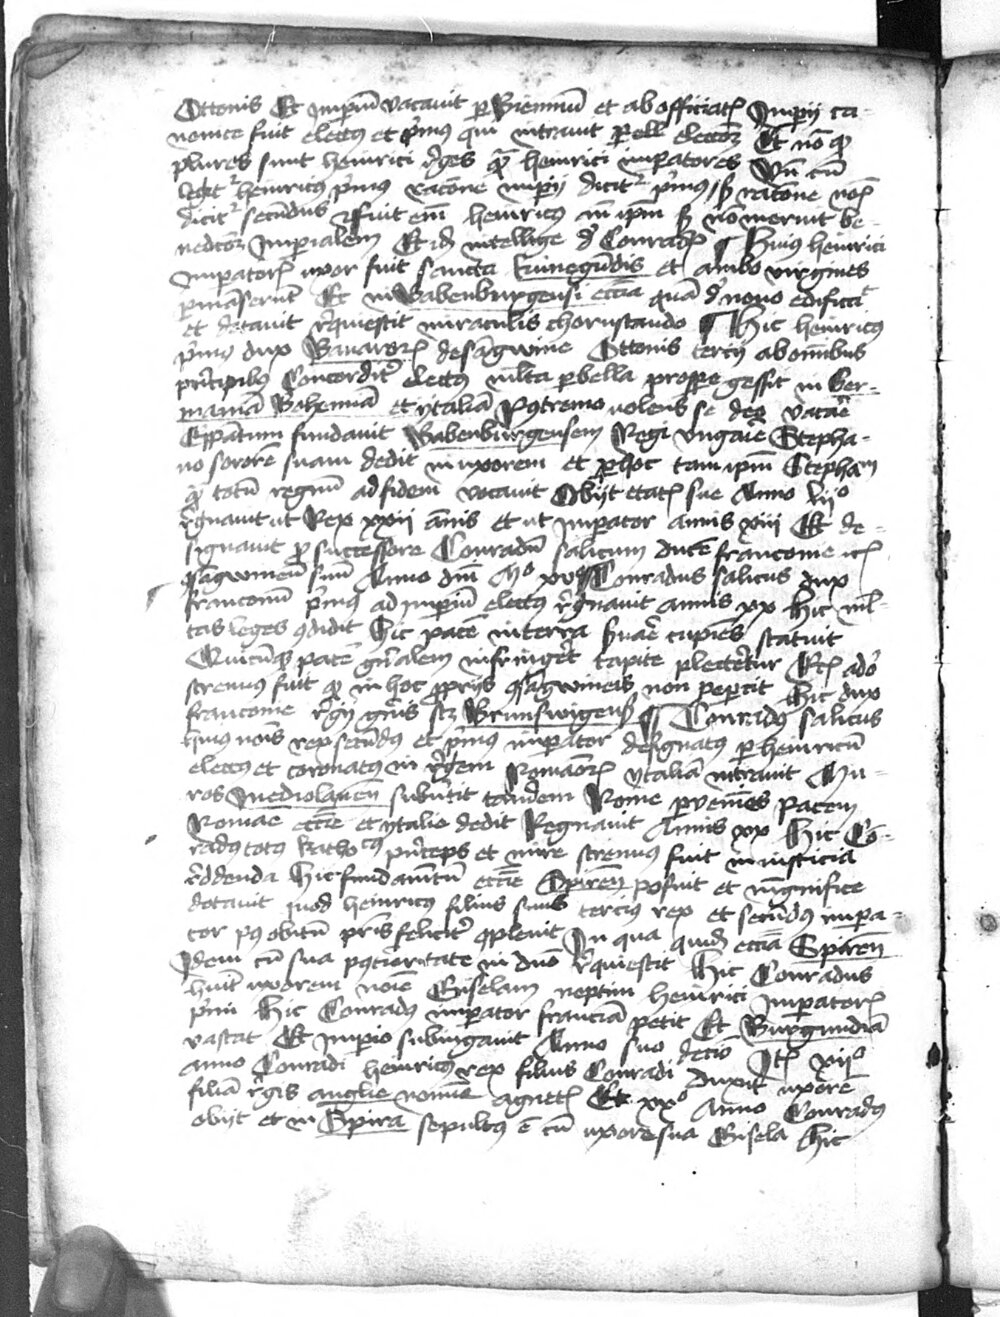 Ottonis Et imperiu vacavit p Bienniu et ab officiat Imperij ca-
nonice fuit electus et primus qui intravit p ell electorum Et no q
plures sunt heinrici reges q heinrici imperatores Vn cu
legit heinricus primus racone imperij dicit primus racone
dicit secundus fuit em heinricus in ipm no meruit be-
nedictoz Imperialem Et id intellige de Conrado ¶ Huius heinrici
imperatoris uxor fuit sancta kunegundis et ambo virgines
permanserunt Et in Babenburgensi eccia qua de novo edificat
et dotavit requiescit miraculis choruscando ¶ Hic heinricus
primus dux Bavaroru de sangwine Ottonis tercij ab omnibus
principibus Concordit electus multa p bella prospe gessit in Ger-
mania Bohemia et ytalia Postremo volens se deo vacare
Epatum fundavit Babenburgensem Regi ungarie Stepha-
no sorore suam dedit in uxorem et p hoc tam ipm Stephanu
q totu regnu ad fidem vocavit Obijt etatis sue Anno lvijº
regnavit ut Rex xxij annis et ut imperator annis xiiij Et de-
signavit p successore Conradu salicum duce franconie
9sangwineu suu Anno dni Mº xv ¶ Conradus salicus dux
franconu primus ad imperiu electus regnavit annis xx Hic mul-
tas leges 9didit Hic pace in terra servare cupiens statuit
Quicunq pace generalem infringeret capite plecteretur adeo
strenuus fuit q in hoc proprijs 9sangwineis non pepercit Hic dux
franconie regij generis Brunswigens ¶ Conradus salicus
huius nois rex secundus et primus imperator designatus p heinricu
electus et coronatus in regem Romanoru ytalia intravit Mu-
ros mediolanen subvertit tandem Rome perveniens pacem
Romae eccie et ytalie dedit Regnavit Annis xx Hic Co-
radus totus katho princeps et mire strenuus fuit in iusticia
reddenda Hic fundamentu eccie Spiren posuit et magnifice
dotavit quod heinricus filius suus tercius rex et secundus impa-
tor post obitu pris feliciter 9plevit In qua quide eccia Spiren
Idem cu sua in dno requiescit Hic Conradus
huit uxorem noie Giselam neptim heinrici Imperatoris
primi Hic Conradus imperator francia petit Et Burgundia
vastat Et imperio subiugavit Anno suo decio It xijº
anno Conradi heinricus rex filius Conradi duxit uxore
filia regis anglie nomine agnete Et xxº Anno Conradus
obijt et in Spira sepultus e cu uxore sua Gisela Hic